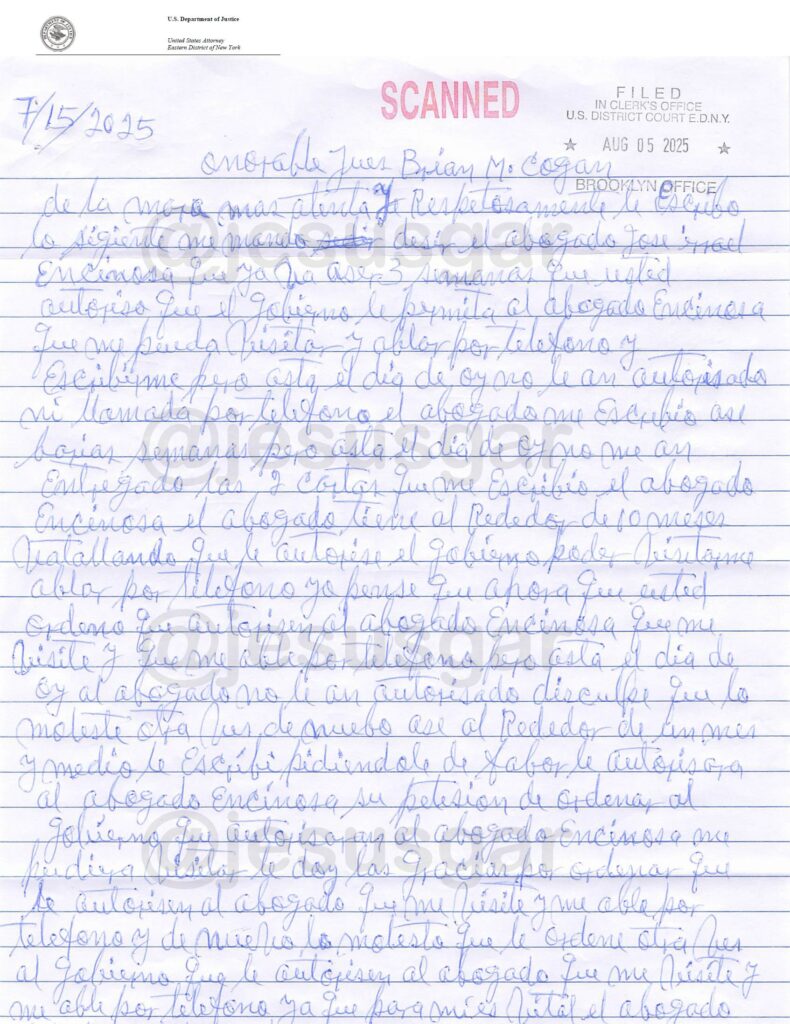 U.S. Department of Justice
United States Attorney
Eastern District of New York
7/15/2025
SCANNED
FILED
IN CLERK'S OFFICE
U.S. DISTRICT COURT E.D.N.Y.
★ AUG 05 2025 ★
BROOKLYN OFFICE
onorable Jues Brian M. Cogan
de la mora mas atenta y Respetosamente le Escribo
lo sigiente me mando desir el abogado Jose irrael
Encinosa que ya va aser 3 semanas que usted
autoriso que el gobierno le permita al abogado Encinosa
que me pueda Visitar y ablar por telefono y
Escribirme pero asta el dia de oy no le an autorisado
ni llamada por telefono el abogado me Escribio ase
barias semanas pero asta el dia de oy no me an
Entregado las 2 cartas que me Escribio el abogado
Encinosa el abogado tiene al Rededor de 10 meses
Vatallando que le autorise el gobierno poder Visitarme
ablar por telefono yo pense que ahora que usted
ordeno que autorisen al abogado Encinosa que me
Visite y que me able por telefono pero asta el dia de
oy al abogado no le an autorisado disculpe que lo
moleste otra Ves de nuebo ase al Rededor de un mes
y medio le Escribi pidiendole de fabor le autorisara
al abogado Encinosa su petision de ordenar al
gobierno que autorisaran al abogado Encinosa me
pudiera Visitar le doy las gracias por ordenar que
le autorisen al abogado que me Visite y me able por
telefono y de nuevo lo molesto que le ordene otra Ves
al gobierno que le autorisen al abogado que me Visite y
me able por telefono ya que para mi es Vital el abogado
@jesusgar
@jesusgar
@jesusgar
@jesusgar